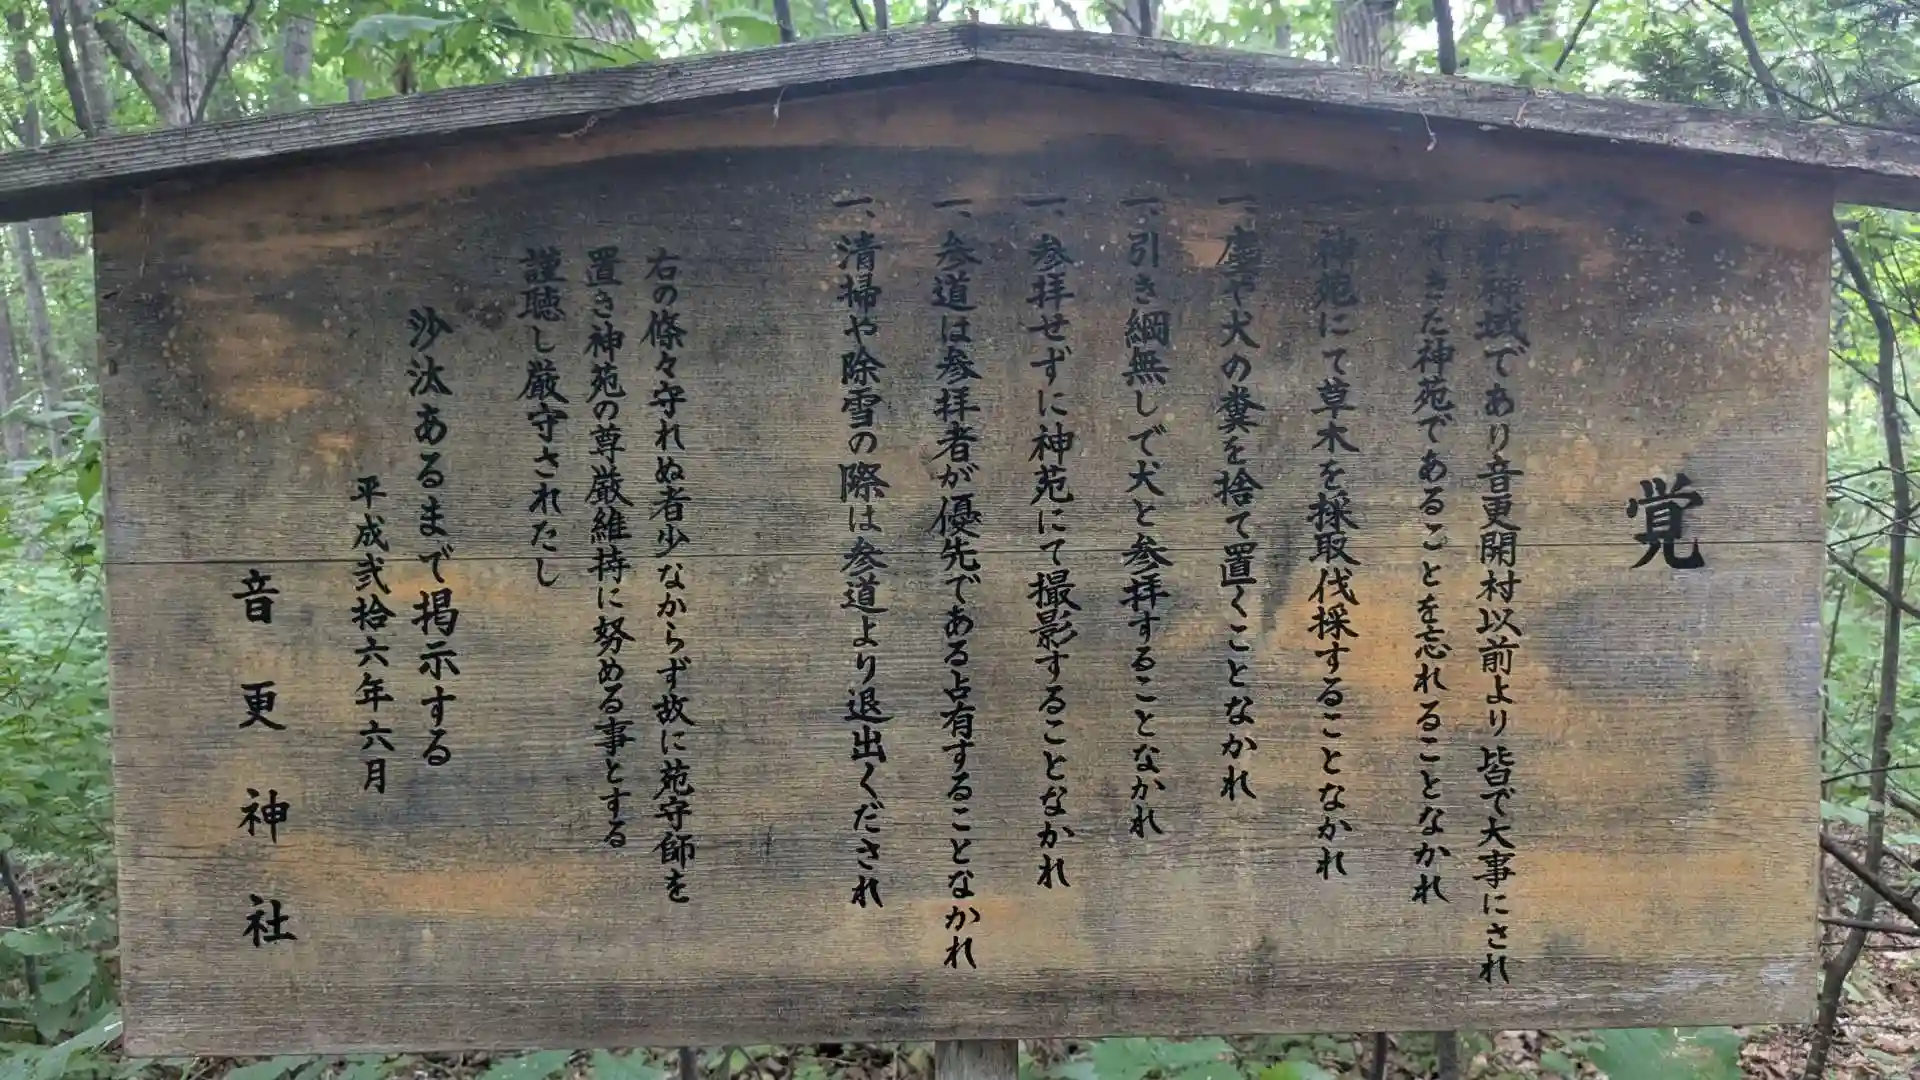 覚
一、神域であり音更開村以前より皆で大事にされ
てきた神苑であることを忘れることなかれ
一、神苑にて草木を採取伐採することなかれ
一、塵や犬の糞を捨て置くことなかれ
一、引き綱無しで犬と参拝することなかれ
一、参拝せずに神苑にて撮影することなかれ
一、参道は参拝者が優先である占有することなかれ
一、清掃や除雪の際は参道より退出くだされ
右の條々守れぬ者少なからず故に苑守師を
置き神苑の尊厳維持に努める事とする
謹聴し厳守されたし
沙汰あるまで掲示する
平成弐拾六年六月
音更神社